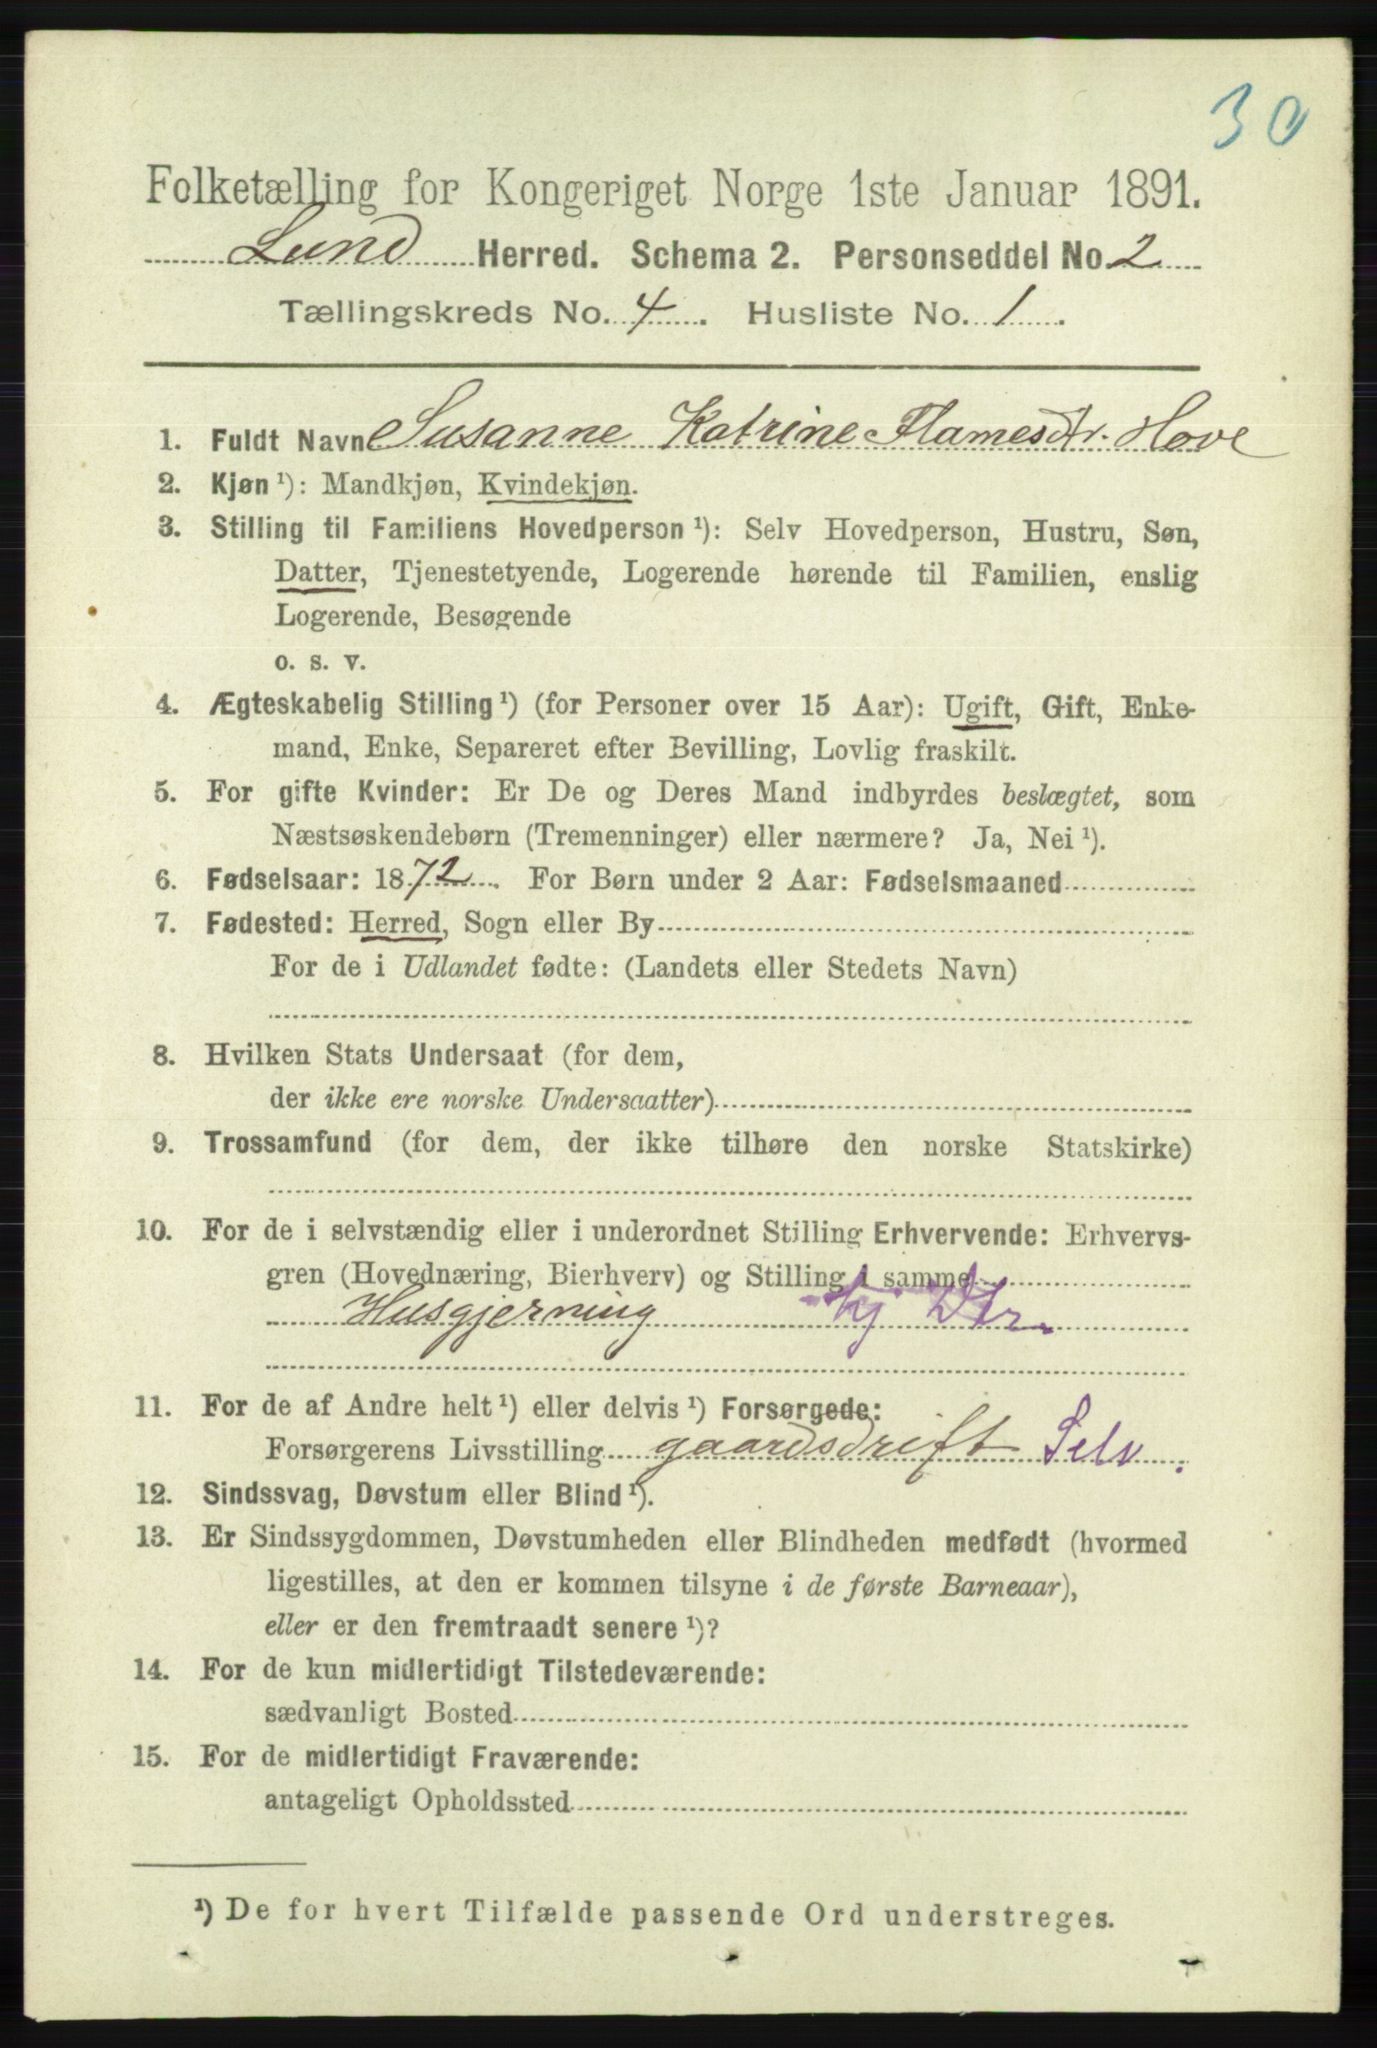 30
Folketælling for Kongeriget Norge 1ste Januar 1891.
Lund Herred. Schema 2. Personseddel No. 2
Tællingskreds No. 4. Husliste No. 1.
1. Fuldt Navn Susanne Katrine Flamesdtr. Hove
2. Kjøn ¹): Mandkjøn, Kvindekjøn.
3. Stilling til Familiens Hovedperson ¹): Selv Hovedperson, Hustru, Søn,
Datter, Tjenestetyende, Logerende hørende til Familien, enslig
Logerende, Besøgende
o. s. v.
4. Ægteskabelig Stilling ¹) (for Personer over 15 Aar): Ugift, Gift, Enke-
mand, Enke, Separeret efter Bevilling, Lovlig fraskilt.
5. For gifte Kvinder: Er De og Deres Mand indbyrdes beslægtet, som
Næstsøskendebørn (Tremenninger) eller nærmere? Ja, Nei ¹).
6. Fødselsaar: 1872. For Børn under 2 Aar: Fødselsmaaned
7. Fødested: Herred, Sogn eller By
For de i Udlandet fødte: (Landets eller Stedets Navn)
8. Hvilken Stats Undersaat (for dem,
der ikke ere norske Undersaatter)
9. Trossamfund (for dem, der ikke tilhøre den norske Statskirke)
10. For de i selvstændig eller i underordnet Stilling Erhvervende: Erhvervs-
gren (Hovednæring, Bierhverv) og Stilling i samme
Husgjerning tj Dtr.
11. For de af Andre helt ¹) eller delvis ¹) Forsørgede:
Forsørgerens Livsstilling gaardsdrift Selv.
12. Sindssvag, Døvstum eller Blind ¹).
13. Er Sindssygdommen, Døvstumheden eller Blindheden medfødt (hvormed
ligestilles, at den er kommen tilsyne i de første Barneaar),
eller er den fremtraadt senere ¹)?
14. For de kun midlertidigt Tilstedeværende:
sædvanligt Bosted
15. For de midlertidigt Fraværende:
antageligt Opholdssted
¹) De for hvert Tilfælde passende Ord understreges.